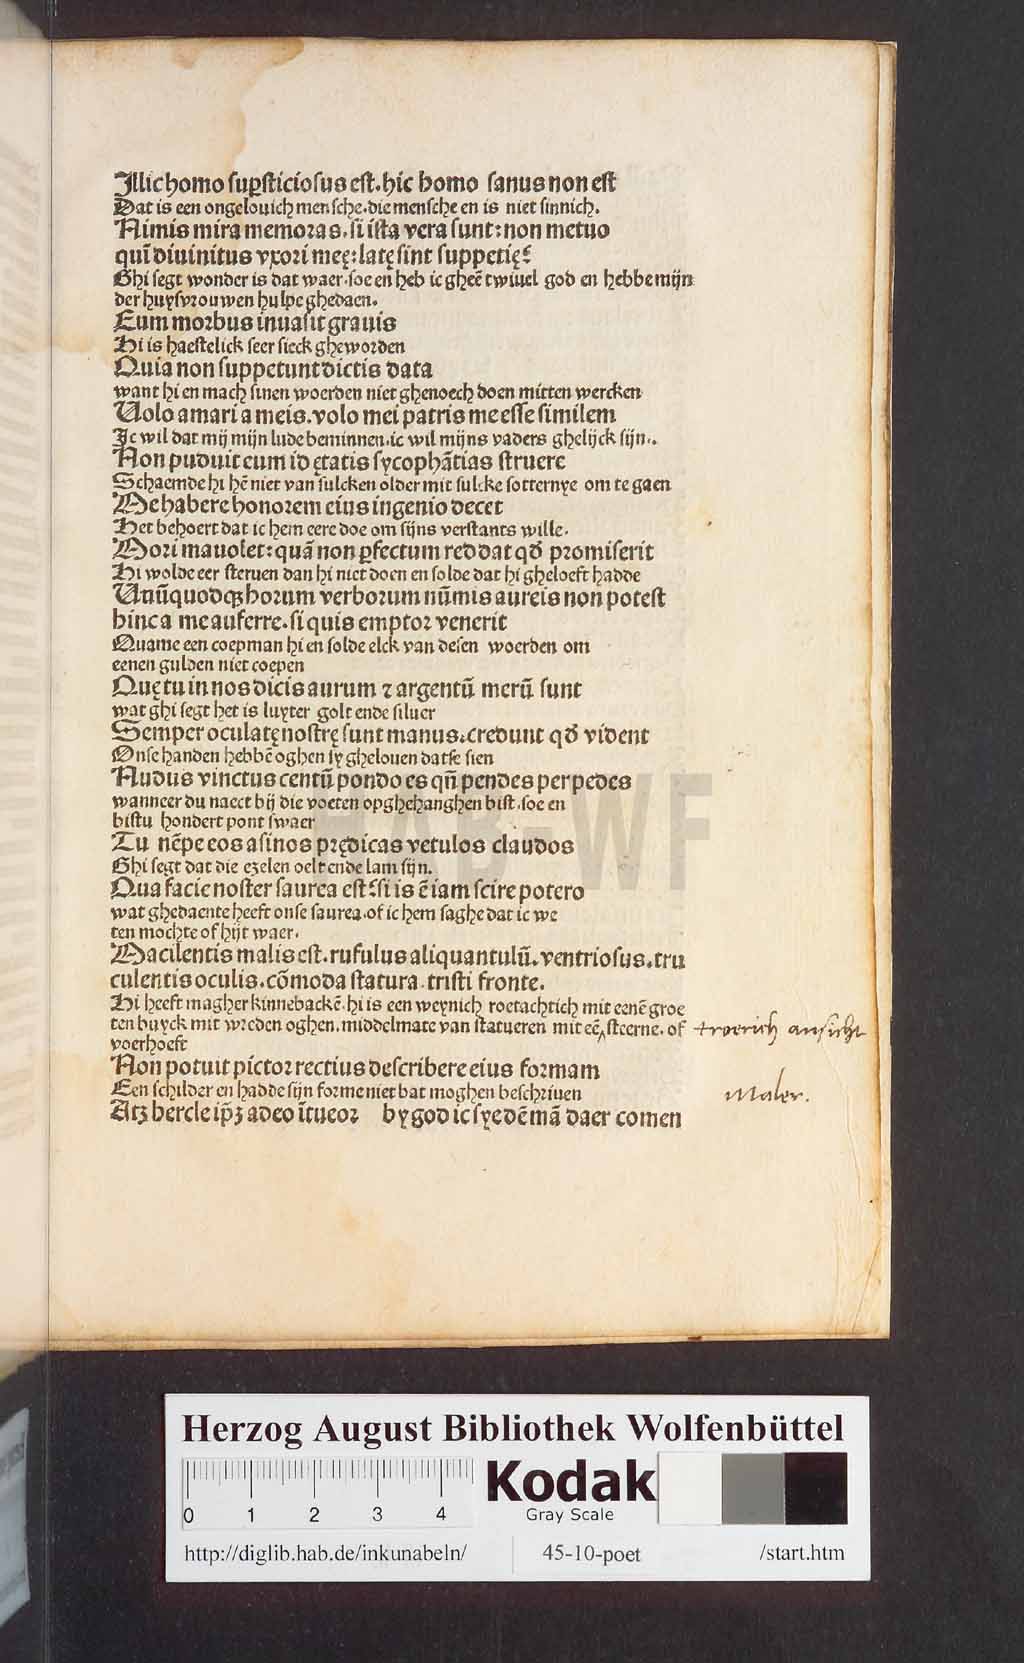 Illic homo sup̲sticiosus est. hic homo sanus non est
Dat is een ongelouich mensche. die mensche en is niet sinnich.
Nimis mira memoras. si ista vera sunt: non metuo
qui̅ diuinitus vxori meę: latę sint suppetię?
Ghi segt wonder is dat waer. soe en heb ic ghee̅ twiuel god en hebbe mijn
der huysvrouwen hulpe ghedaen.
Eum morbus inuasit grauis
Hi is haestelick seer sieck gheworden
Quia non suppetunt dictis data
want hi en mach sinen woerden niet ghenoech doen mitten wercken
Uolo amari a meis. volo mei patris me esse similem
Ic wil dat mij mijn lude beminnen. ic wil mijns vaders ghelijck sijn.
Non puduit eum id ętatis sycopha̅tias struere
Schaemde hi he̅ niet van sulcken older mit sulcke sotternye om te gaen
Me habere honorem eius ingenio decet
Het behoert dat ic hem eere doe om sijns verstants wille.
Mori mauolet: qua̅ non p̲fectum reddat qď promiserit
Hi wolde eer steruen dan hi niet doen en solde dat hi gheloeft hadde
Unu̅quodqꝫ horum verborum nu̅mis aureis non potest
hinc a me auferre. si quis emptor venerit
Quame een coepman hi en solde elck van desen woerden om
eenen gulden niet coepen
Quę tu in nos dicis aurum ⁊ argentu̅ meru̅ sunt
wat ghi segt het is luyter golt ende siluer
Semper oculatę nostrę sunt manus. credunt qď vident
Onse handen hebbe̅ oghen sy ghelouen datse sien
Nudus vinctus centu̅ pondo es qn̅ pendes per pedes
wanneer du naect bij die voeten opghehanghen bist. soe en
bistu hondert pont swaer
Tu ne̅pe eos asinos prędicas vetulos claudos
Ghi segt dat die ezelen oelt ende lam sijn.
Qua facie noster saurea est? si is e̅ iam scire potero
wat ghedaente heeft onse saurea. of ic hem saghe dat ic we
ten mochte of hijt waer.
Macilentis malis est. rufulus aliquantulu̅. ventriosus. tru
culentis oculis. co̅moda statura. tristi fronte.
Hi heeft magher kinnebacke̅. hi is een weynich roetachtich mit eene̅ groe
ten buyck mit wreden oghen. middelmate van statueren mit ee̅ ‸ steerne. of troerich ansicht
voerhoeft
Non potuit pictor rectius describere eius formam
Een schilder en hadde sijn forme niet bat moghen beschriuen Maler.
Atꝫ hercle ip̅ꝫ adeo i̅tueor by god ic sye de̅ ma̅ daer comen
HAB-WF
Herzog August Bibliothek Wolfenbüttel
0 1 2 3 4
Kodak
Gray Scale
http://diglib.hab.de/inkunabeln/ 45-10-poet /start.htm